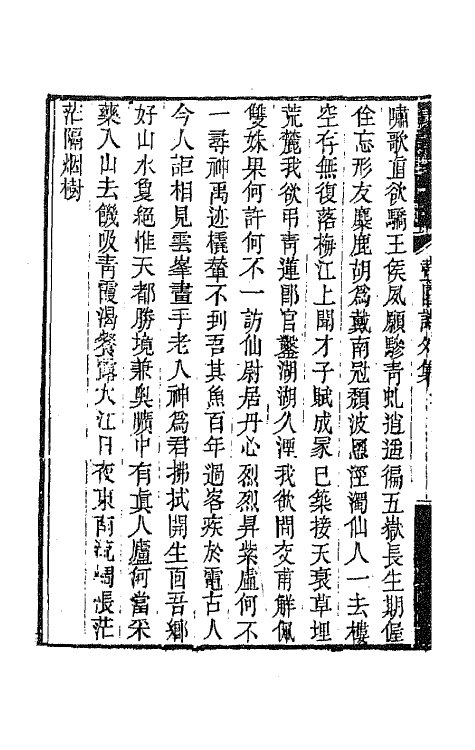 嘯歌直欲驕王侯夙願驂青虬逍遥徧五嶽長生期偓
佺忘形友麋鹿胡爲戴南冠頽波慁涇濁仙人一去樓
空存無復落梅江上聞才子賦成冢已築接天衰草埋
荒麓我欲弔青蓮郎官鑿湖湖久湮我欲問交甫解佩
雙姝果何許何不一訪仙尉居丹心烈烈昇紫廬何不
一尋神禹迹橇輂不到吾其魚百年過客疾於電古人
今人詎相見雲峯畫手老入神爲君拂拭開生面吾鄉
好山水敻絶惟天都勝境兼奧曠中有眞人廬何當采
藥入山去饑吸青霞渴餐露大江日夜東南流惆悵茫
茫隔烟樹